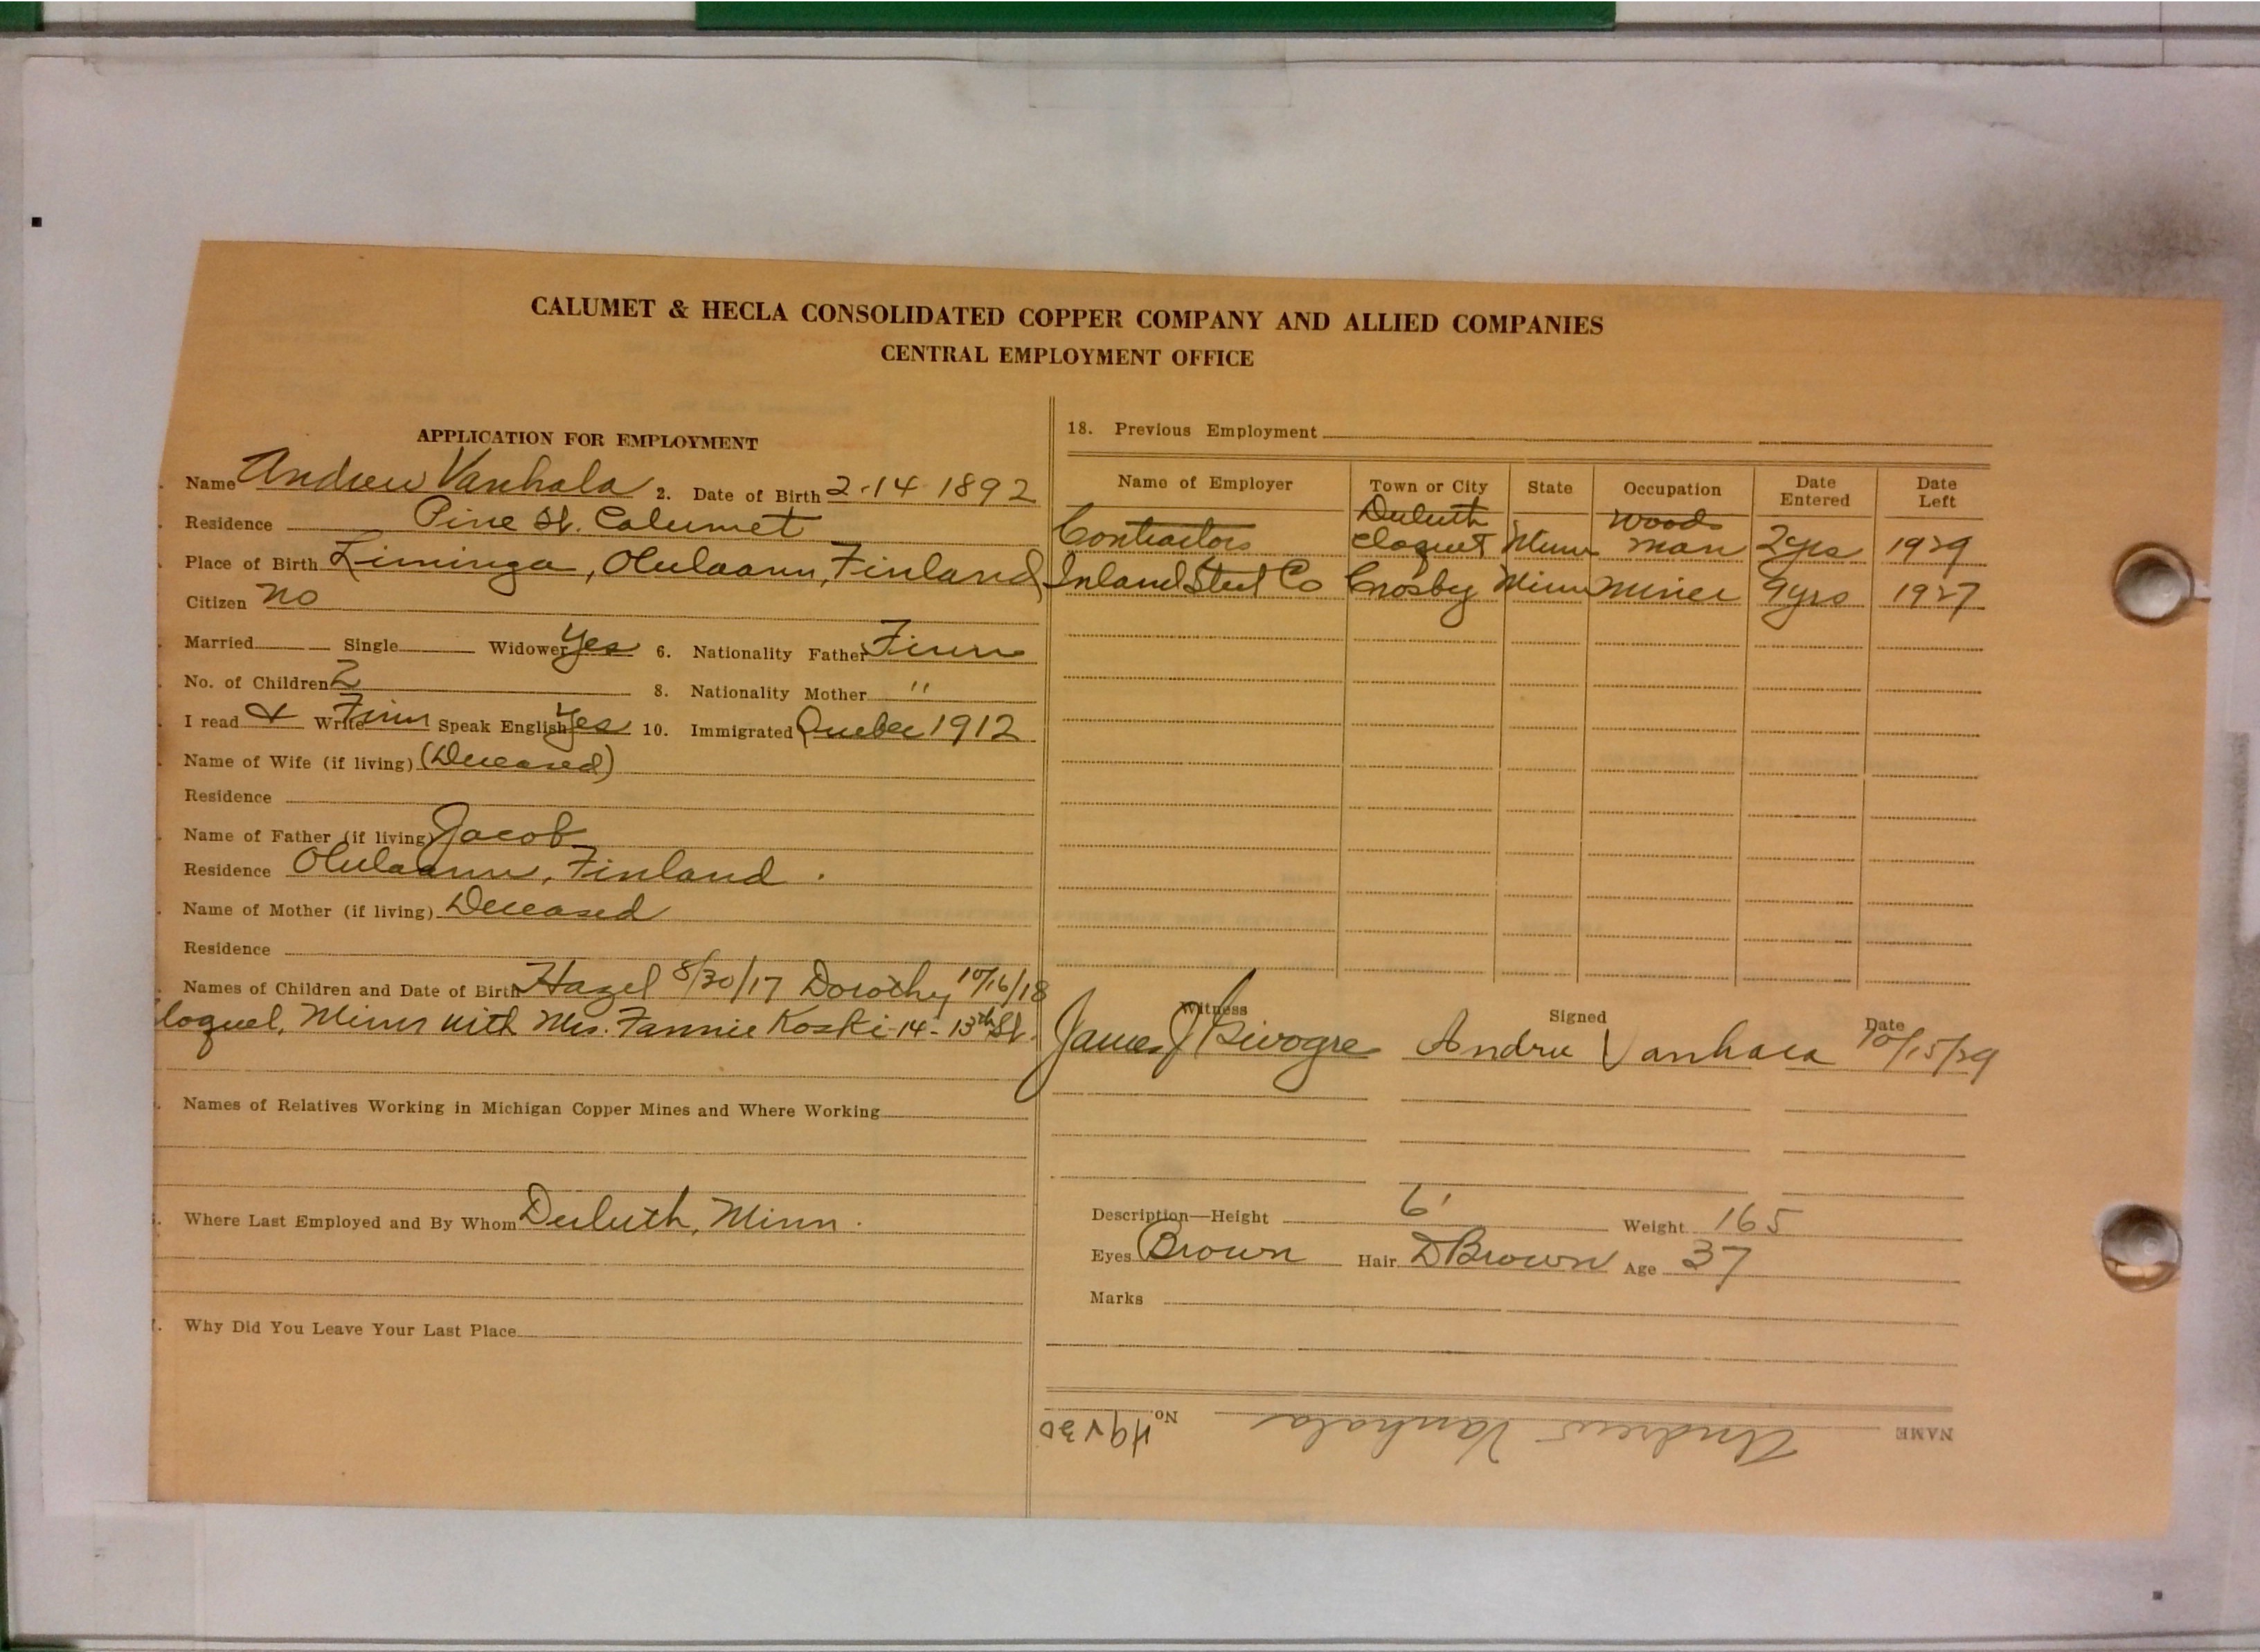 CALUMET & HECLA CONSOLIDATED COPPER COMPANY AND ALLIED COMPANIES
CENTRAL EMPLOYMENT OFFICE
APPLICATION FOR EMPLOYMENT
Name Andrew Vanhala 2. Date of Birth 2-14 1892
Residence Pine St. Calumet
Place of Birth Liminga, Olulaann, Finland
Citizen no
Married Single Widower Yes 6. Nationality Father Finn
No. of Children 2 8. Nationality Mother "
I read & Write Finn Speak English Yes 10. Immigrated Quebec 1912
Name of Wife (if living) (Deceased)
Residence
Name of Father (if living) Jacob
Residence Olulaann, Finland.
Name of Mother (if living) Deceased
Residence
Names of Children and Date of Birth Hazel 8/30/17 Dorothy 10/16/18
loquet, Minn with Mrs. Fannie Koski 14 - 13th St.
Names of Relatives Working in Michigan Copper Mines and Where Working
Where Last Employed and By Whom Duluth, Minn.
Why Did You Leave Your Last Place
18. Previous Employment
Name of Employer Town or City State Occupation Date Entered Date Left
Duluth Woods
Contractors Cloquet Minn man 2yrs 1929
Inland Steel Co Crosby Minn Miner 9yrs 1927
Witness Signed Date
James J Andru Vanhala 10/15/29
Description—Height 6' Weight 165
Eyes Brown Hair D Brown Age 37
Marks
NAME Andrew Vanhala No.